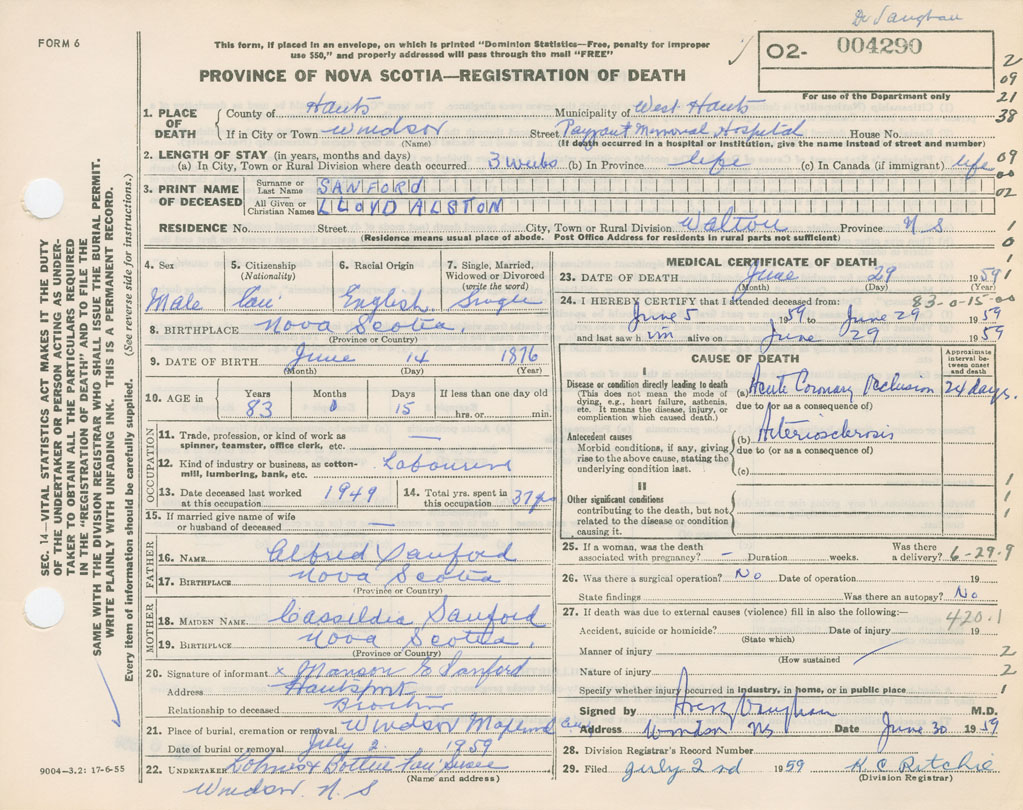 Dr Vaughan
FORM 6
This form, if placed in an envelope, on which is printed "Dominion Statistics—Free, penalty for improper
use $50," and properly addressed will pass through the mail "FREE"
O2- 004290
For use of the Department only
PROVINCE OF NOVA SCOTIA—REGISTRATION OF DEATH
2
09
21
38
09
00
02
1
0
1
1
1. PLACE OF DEATH
County of Hants Municipality of West Hants
If in City or Town Windsor Street Payzant Memorial Hospital House No.
(Name) (If death occurred in a hospital or institution, give the name instead of street and number)
2. LENGTH OF STAY (in years, months and days)
(a) In City, Town or Rural Division where death occurred 3 weeks (b) In Province life (c) In Canada (if immigrant) life
3. PRINT NAME OF DECEASED
Surname or Last Name SANFORD
All Given or Christian Names LLOYD ALSTON
RESIDENCE No. Street City, Town or Rural Division Walton Province N S
(Residence means usual place of abode. Post Office Address for residents in rural parts not sufficient)
4. Sex Male
5. Citizenship (Nationality) Can
6. Racial Origin English
7. Single, Married, Widowed or Divorced (write the word) Single
8. BIRTHPLACE Nova Scotia.
(Province or Country)
9. DATE OF BIRTH June 14 1876
(Month) (Day) (Year)
10. AGE in Years 83 Months 0 Days 15 If less than one day old
hrs. or min.
OCCUPATION
11. Trade, profession, or kind of work as spinner, teamster, office clerk, etc. —
12. Kind of industry or business, as cotton-mill, lumbering, bank, etc.
13. Date deceased last worked at this occupation 1949
14. Total yrs. spent in this occupation 37 yrs
15. If married give name of wife or husband of deceased —
FATHER
16. NAME Alfred Sanford
17. BIRTHPLACE Nova Scotia
(Province or Country)
MOTHER
18. MAIDEN NAME Cassildia Sanford
19. BIRTHPLACE Nova Scotia.
(Province or Country)
20. Signature of informant x Manson E Sanford
Address Hantsport
Relationship to deceased Brother
21. Place of burial, cremation or removal Windsor
Date of burial or removal July 2 1959
22. UNDERTAKER
(Name and address)
Windsor. N. S
MEDICAL CERTIFICATE OF DEATH
23. DATE OF DEATH June 29 1959
(Month) (Day) (Year)
24. I HEREBY CERTIFY that I attended deceased from: 83-0-15-00
June 5 1959 to June 29 1959
and last saw him alive on June 29 1959
CAUSE OF DEATH
Approximate interval between onset and death
I
Disease or condition directly leading to death
(This does not mean the mode of dying, e.g., heart failure, asthenia, etc. It means the disease, injury, or complication which caused death.)
(a) Acute Coronary Occlusion 24 days.
due to (or as a consequence of)
Antecedent causes
Morbid conditions, if any, giving rise to the above cause, stating the underlying condition last.
(b) Arteriosclerosis
due to (or as a consequence of)
(c)
II
Other significant conditions
contributing to the death, but not related to the disease or condition causing it.
1
1
1
25. If a woman, was the death associated with pregnancy? – Duration weeks. Was there a delivery? 6-29-9
26. Was there a surgical operation? No Date of operation 19
State findings Was there an autopsy? No
27. If death was due to external causes (violence) fill in also the following:—
420.1
Accident, suicide or homicide? Date of injury 19
(State which)
Manner of injury 2
(How sustained)
Nature of injury 2
Specify whether injury occurred in industry, in home, or in public place 1
Signed by Avery Vaughan M.D.
Address Windsor NS Date June 30 1959
28. Division Registrar's Record Number
29. Filed July 2nd 1959 K C Ritchie
(Division Registrar)
SEC. 14—VITAL STATISTICS ACT MAKES IT THE DUTY
OF THE UNDERTAKER OR PERSON ACTING AS UNDER-
TAKER TO OBTAIN ALL THE PARTICULARS REQUIRED
IN THE "REGISTRATION OF DEATH" AND TO FILE THE
SAME WITH THE DIVISION REGISTRAR WHO SHALL ISSUE THE BURIAL PERMIT.
WRITE PLAINLY WITH UNFADING INK. THIS IS A PERMANENT RECORD.
Every item of information should be carefully supplied. (See reverse side for instructions.)
9004—3.2: 17-6-55